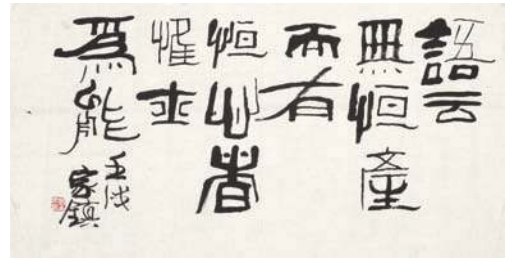 語云
無恒產
而有
恒心者
惟士
為能
壬戌
家鎮